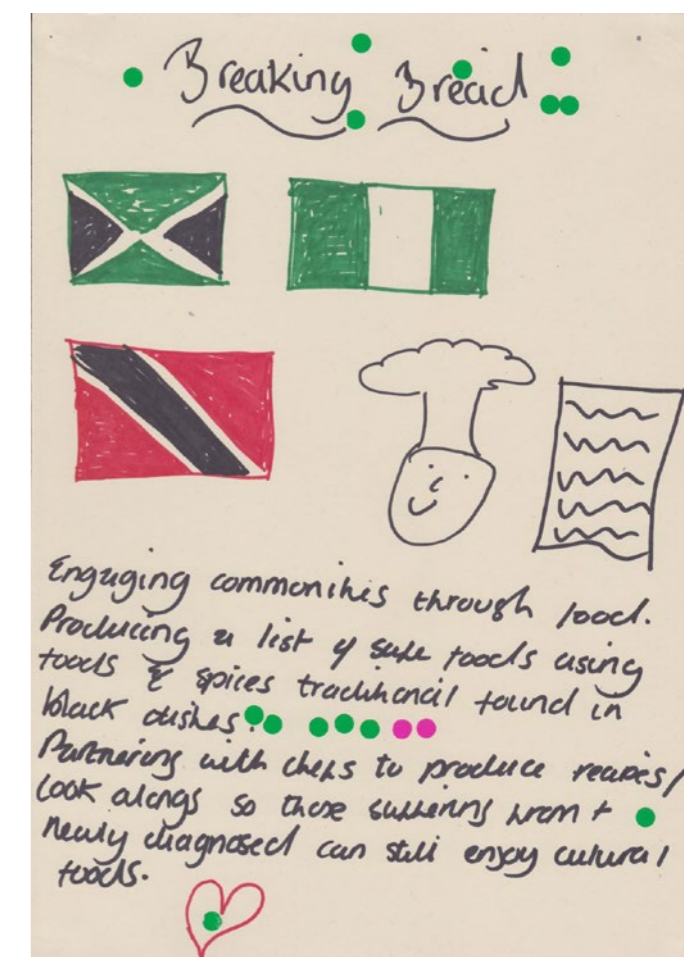 Breaking Bread
Engaging communities through food.
Producing a list of safe foods using
foods & spices traditional found in
black dishes.
Partnering with chefs to produce recipes/
Cook alongs so those suffering from +
newly diagnosed can still enjoy cultural
foods.